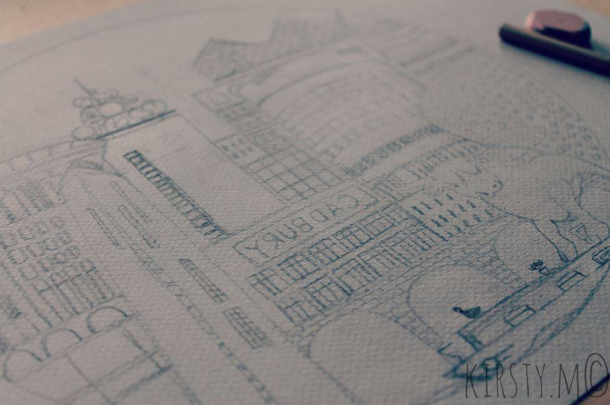 CADBURY
KIRSTY.M©